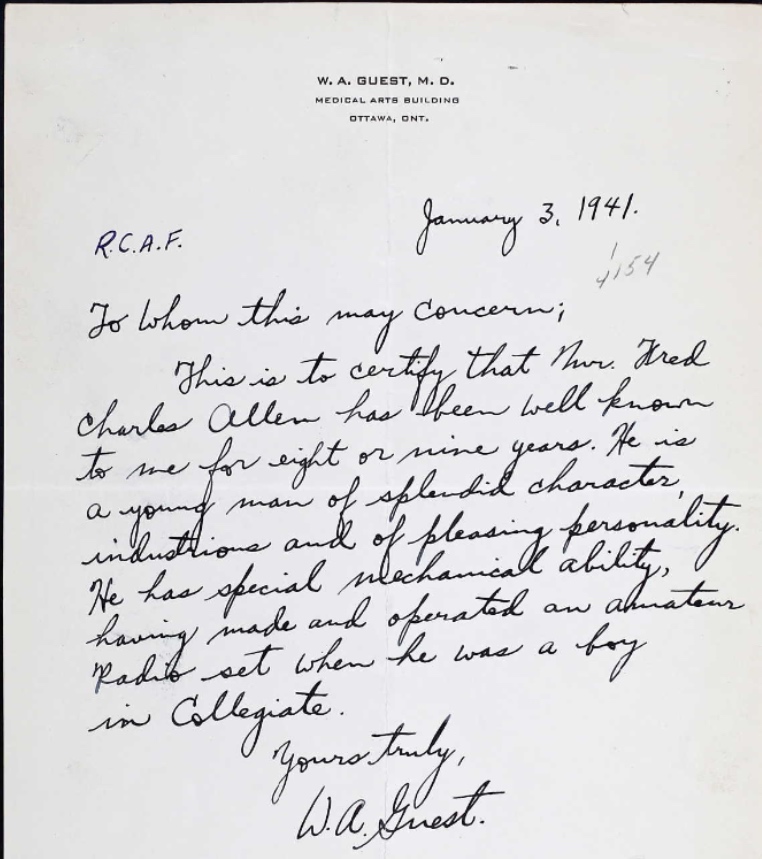 W. A. GUEST, M. D.
MEDICAL ARTS BUILDING
OTTAWA, ONT.
January 3, 1941.
R.C.A.F.
1
4154
To Whom this may Concern;
This is to certify that Mr. Fred
Charles Allen has been well known
to me for eight or nine years. He is
a young man of splendid character,
industrious and of pleasing personality.
He has special mechanical ability,
having made and operated an amateur
Radio set when he was a boy
in Collegiate.
Yours truly,
W.A. Guest.